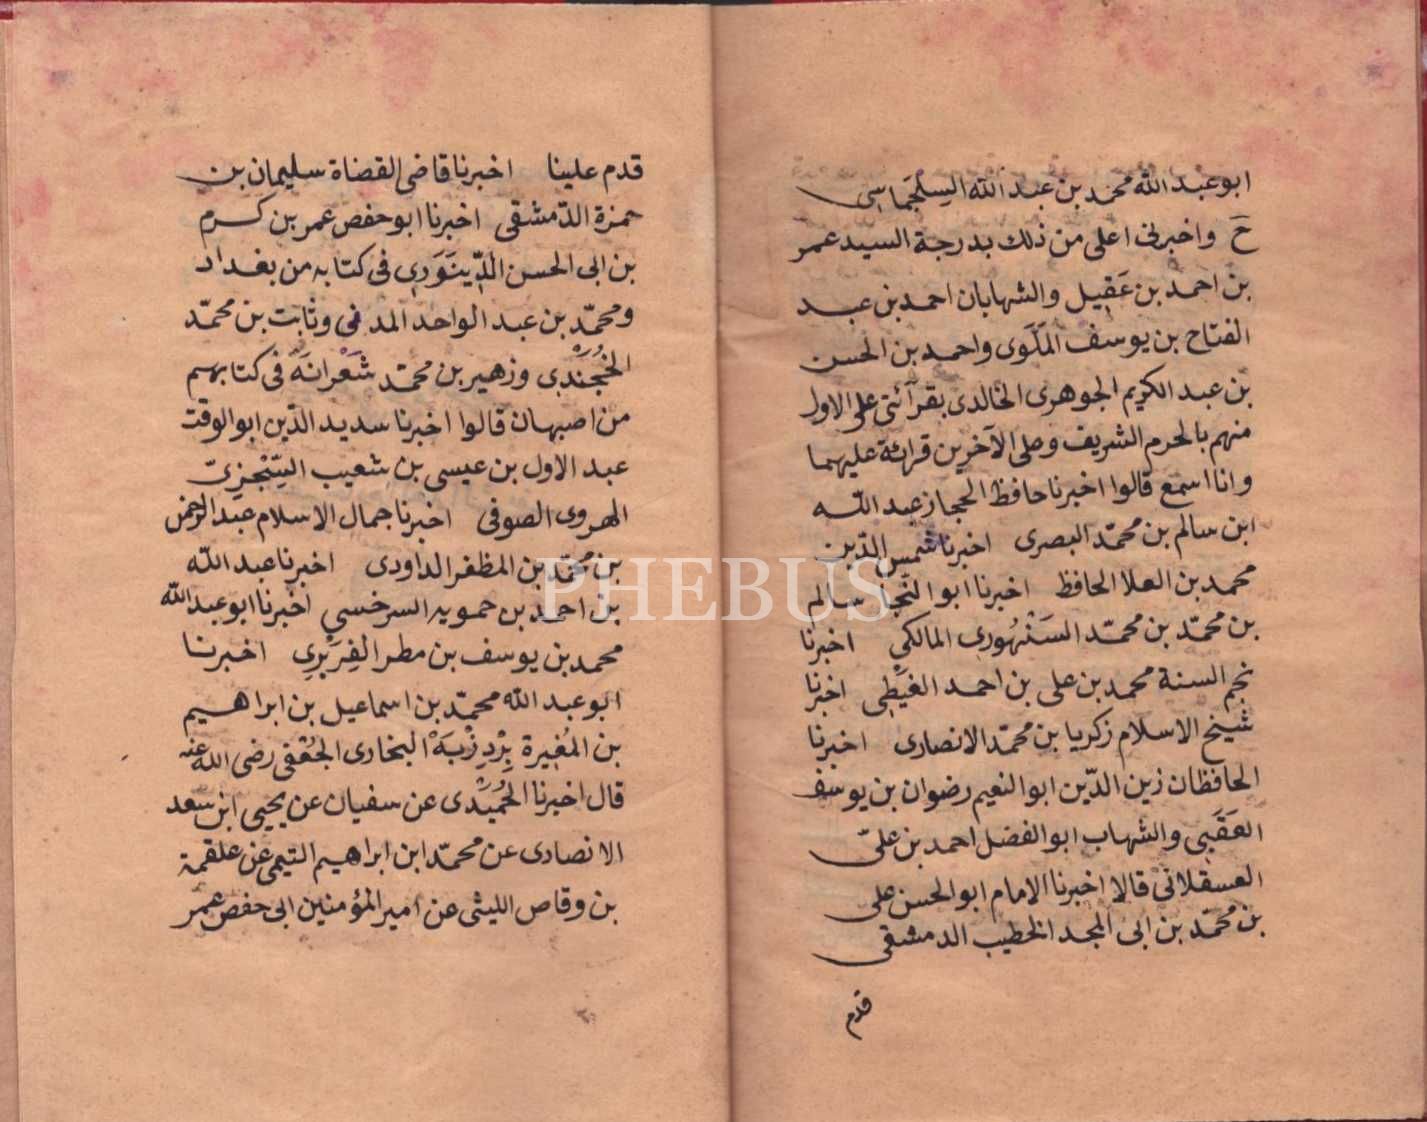 ابو عبد الله محمد بن عبد الله السلجماسى
ح واخبرنى اعلى من ذلك بدرجة السيد عمر
بن احمد بن عَقِيل والشهابان احمد بن عبد
الفتاح بن يوسف المَلَوى واحمد بن الحسن
بن عبد الكريم الجوهرى الخالدى بقرآئتى على الاول
منهم بالحرم الشريف وعلى الآخرين قرائة عليهما
وانا اسمع قالوا اخبرنا حافظ الحجاز عبد الله
ابن سالم بن محمّد البصرى اخبرنا شمس الدّين
محمد بن العلا الحافظ اخبرنا ابو النجا سالم
بن محمّد بن محمّد السَنْهُورى المالكي اخبرنا
نجم السنة محمد بن على بن احمد الغَيْطِى اخبرنا
شيخ الاسلام زكريا بن محمّد الانصارى اخبرنا
الحافظان زين الدّين ابو النعيم رضوان بن يوسف
العَقَبِى والشهاب ابو الفضل احمد بن علىّ
العسقلانى قالا اخبرنا الامام ابو الحسن على
بن محمّد بن ابى المجد الخطيب الدمشقى
قدم
قدم علينا اخبرنا قاضى القضاة سليمان بن
حمزة الدّمشقى اخبرنا ابو حفص عمر بن كرم
بن ابى الحسن الدِّينَوَرى فى كتابه من بغداد
ومحمّد بن عبد الواحد المدنى وثابت بن محمّد
الخُجَنْدى وزهير بن محمّد شَعْرانَه فى كتابهم
من اصبهان قالوا اخبرنا سديد الدّين ابو الوقت
عبد الاول بن عيسى بن شعيب السِّجْزِىّ
الهروى الصوفى اخبرنا جمال الاسلام عبد الرحمن
بن محمّد بن المظفر الداودى اخبرنا عبد الله
بن احمد بن حمويه السرخسي اخبرنا ابو عبد الله
محمد بن يوسف بن مطر الفِرَبْرِى اخبرنا
ابو عبد الله محمّد بن اسماعيل بن ابراهيم
بن المُغيرة بِرْدِزْبَهْ البخارى الجُعْفى رضى الله عنه
قال اخبرنا الحُمَيْدى عن سفيان عن يحيى ابن سعد
الانصارى عن محمّد ابن ابراهيم التيمى عن علقمة
بن وقاص الليثى عن امير المؤمنين ابى حفص عمر
PHEBUS